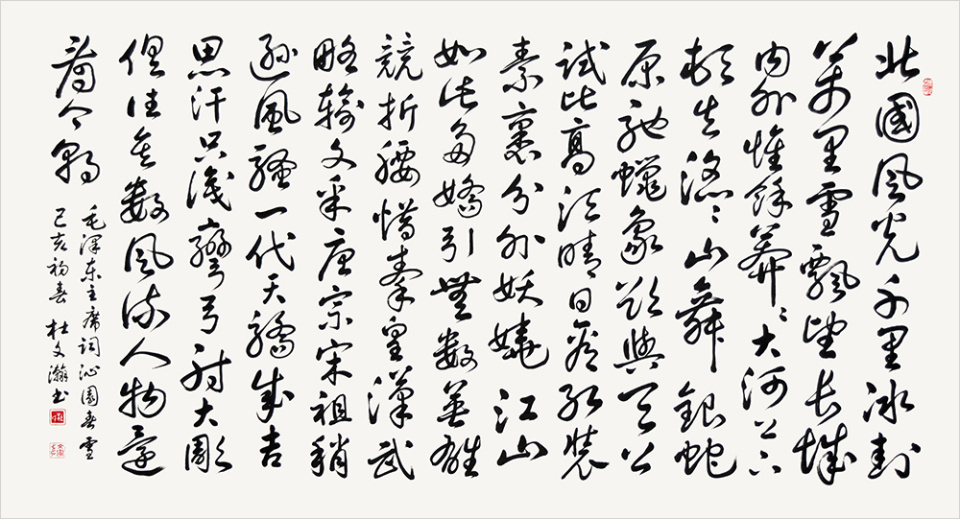 北國風光千里冰封
萬里雪飄望長城
内外惟餘莽〻大河上下
頓失滔〻山舞銀蛇
原馳蠟象欲與天公
試比高須晴日看紅裝
素裹分外妖嬈江山
如此多嬌引無數英雄
競折腰惜秦皇漢武
略輸文采唐宗宋祖稍
遜風騷一代天驕成吉
思汗只識彎弓射大雕
俱往矣數風流人物還
看今朝
毛澤東主席詞沁園春雪
己亥初春 杜文瀚書